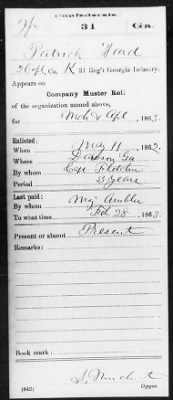 Confederate.
31 Ga.
Patrick Ward
Co. K, 31 Reg't Georgia Infantry.
Appears on
Company Muster Roll
of the organization named above,
for Mch & Apl, 1863.
Enlisted:
When May 11, 1862.
Where Dawson Ga
By whom Capt Fletcher
Period 3 years
Last paid:
By whom Maj Ambler
To what time Feb 28, 1863.
Present or absent Present
Remarks:
Book mark:
(642)
Copyist.